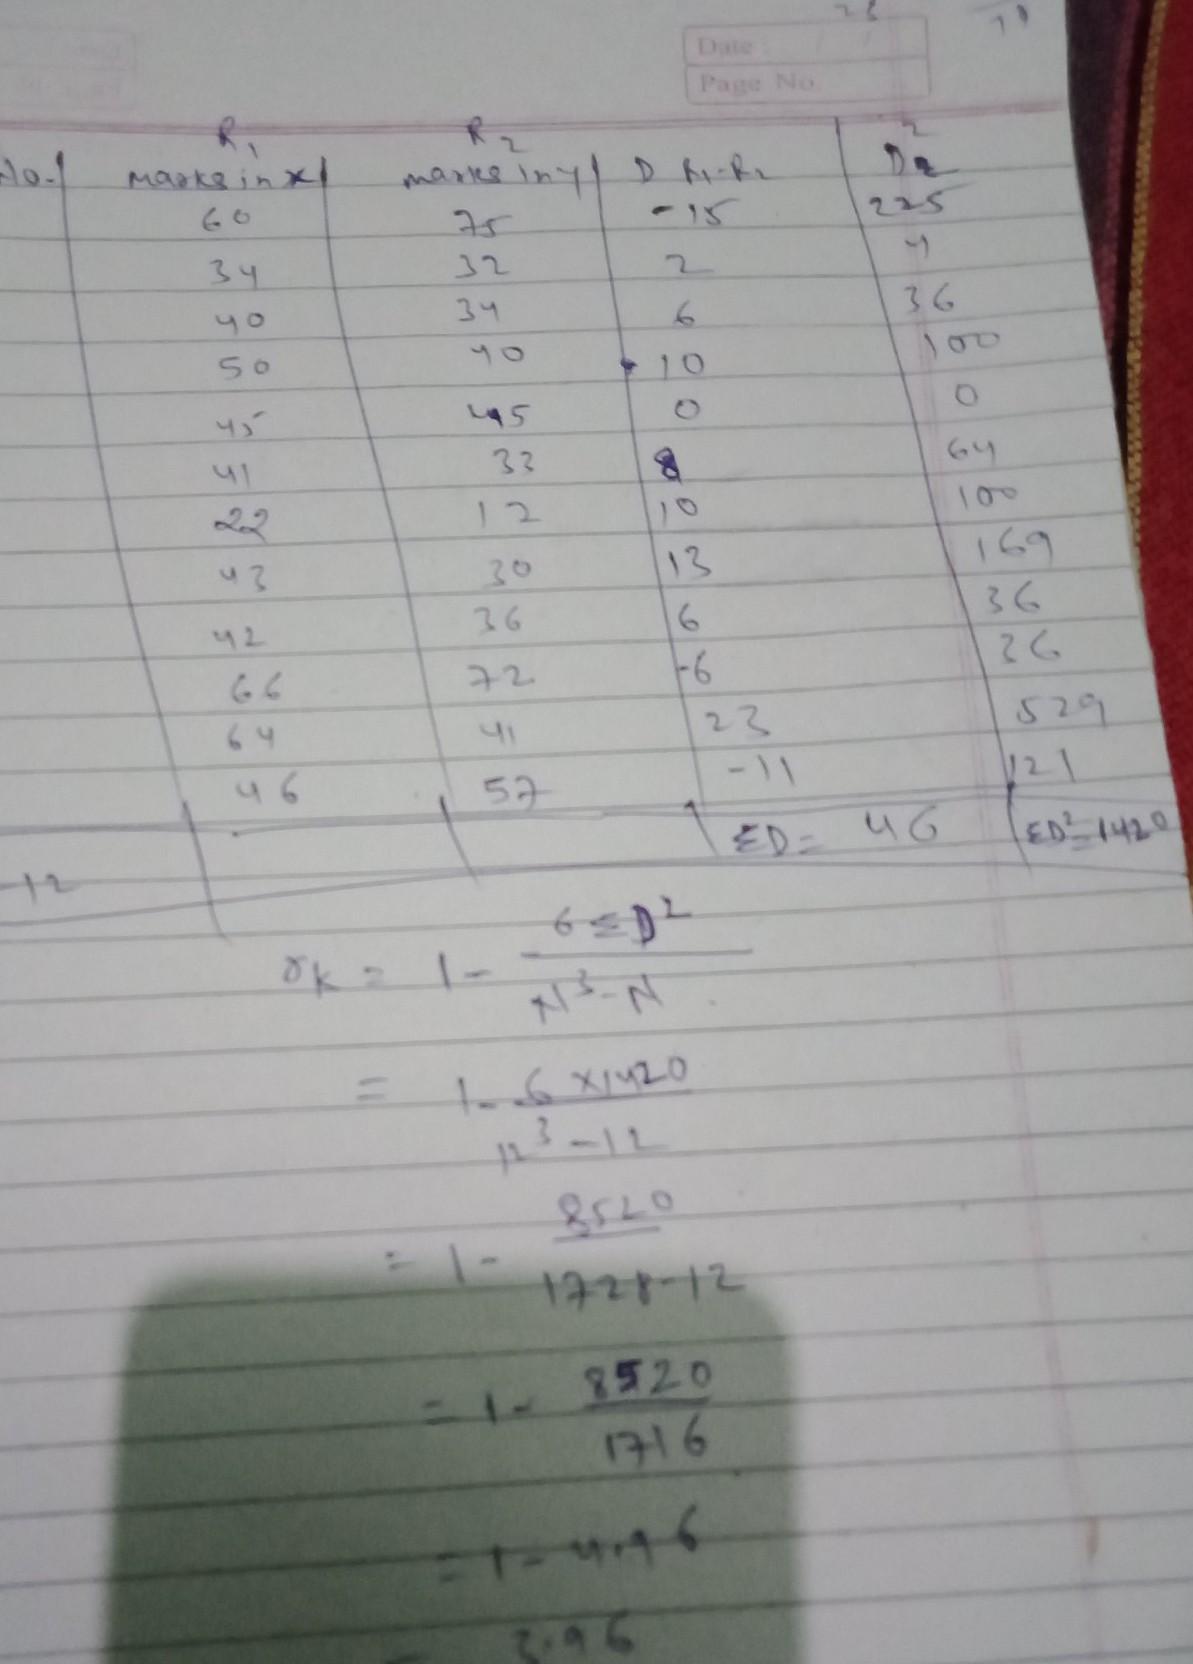 Date :
Page No.
R1 R2
No. marks in x marks in y D R1-R2 D2^2
60 75 -15 225
34 32 2 4
40 34 6 36
50 40 10 100
45 45 0 0
41 33 8 64
22 12 10 100
43 30 13 169
42 36 6 36
66 72 -6 36
64 41 23 529
46 57 -11 121
ΣD= 46 ΣD²=1420
-12
rk = 1 - 6ΣD² / N³-N
= 1 - 6 x1420 / 12³-12
= 1 - 8520 / 1728-12
= 1 - 8520 / 1716
= 1 - 4.96
= 3.96